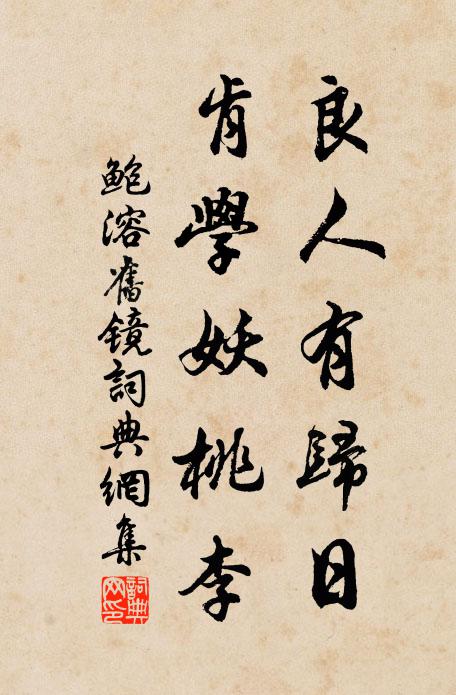 良人有歸日
肯學妖桃李
鮑溶舊镜詞典網集
詞典網印